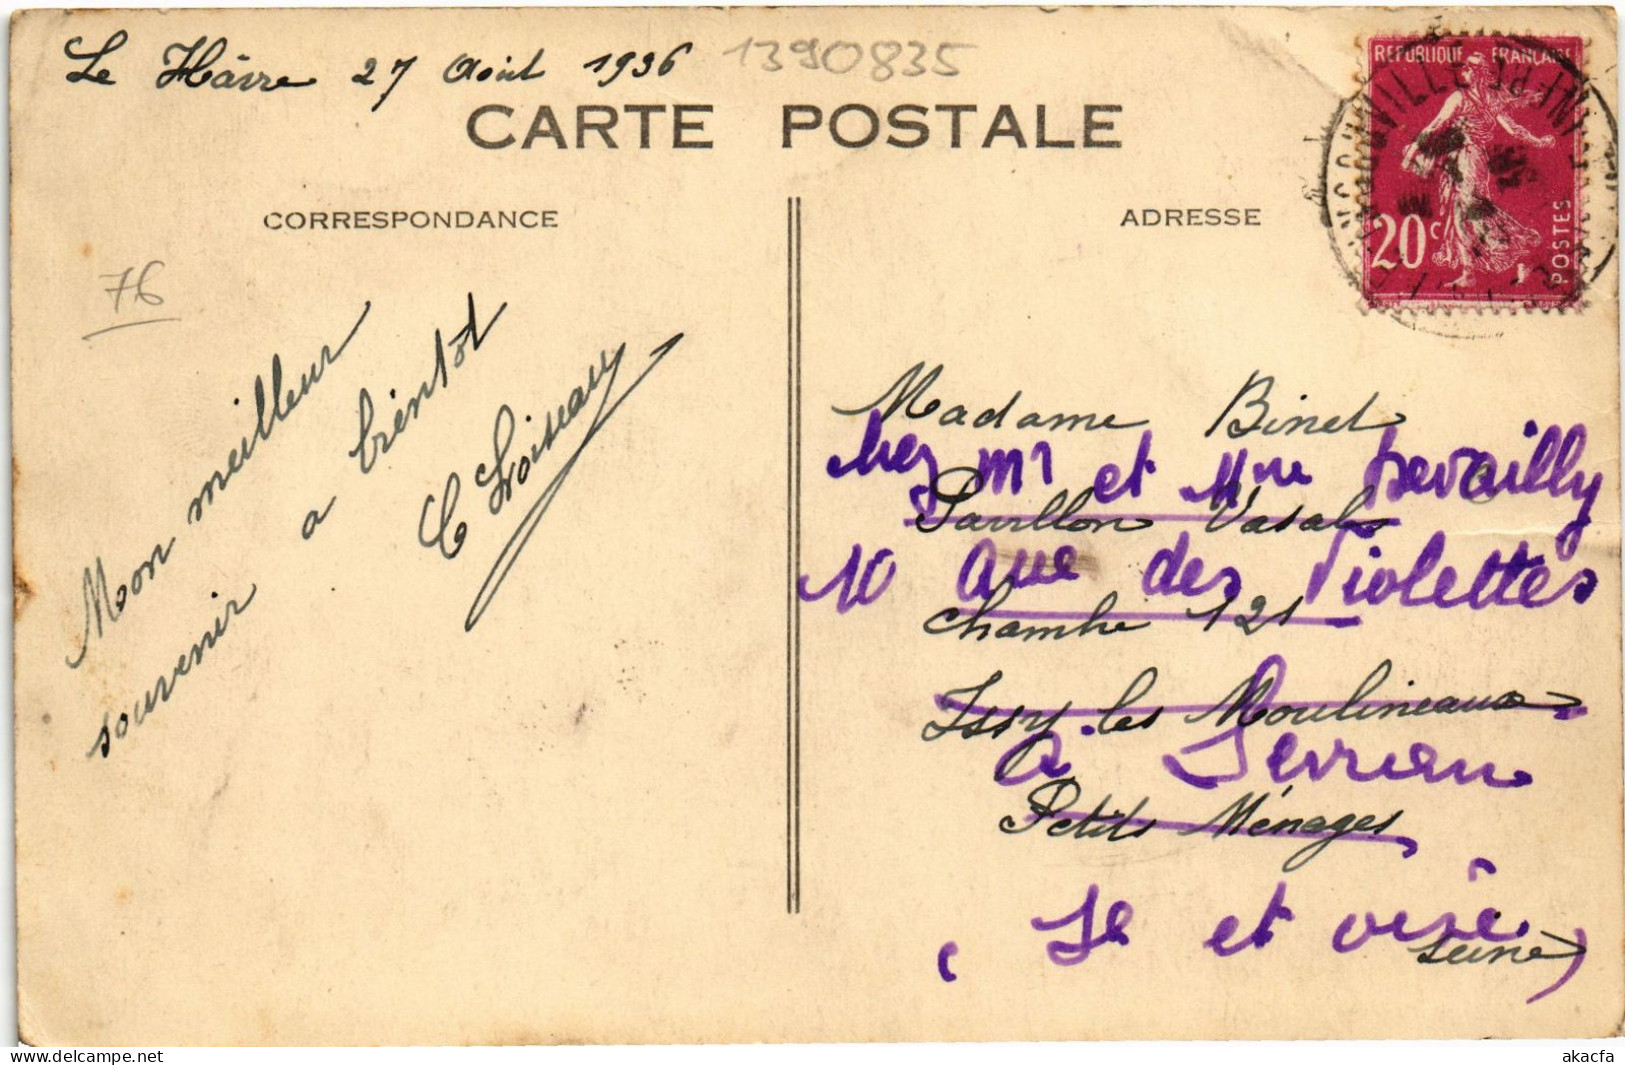 Le Hâvre 27 Août 1936
1390835
CARTE POSTALE
CORRESPONDANCE
ADRESSE
REPUBLIQUE FRANÇAISE
20c
POSTES
76
Moon meilleur
souvenir a bientôt
C Loiseau
Madame Binet
chez Mr et Mme Devailly
Pavillon Vasal
10 Aue des Violettes
Chambre 121
Issy les Moulineaux
à Perrien
Petits Ménages
(Se et oise)
Seine
akacfa